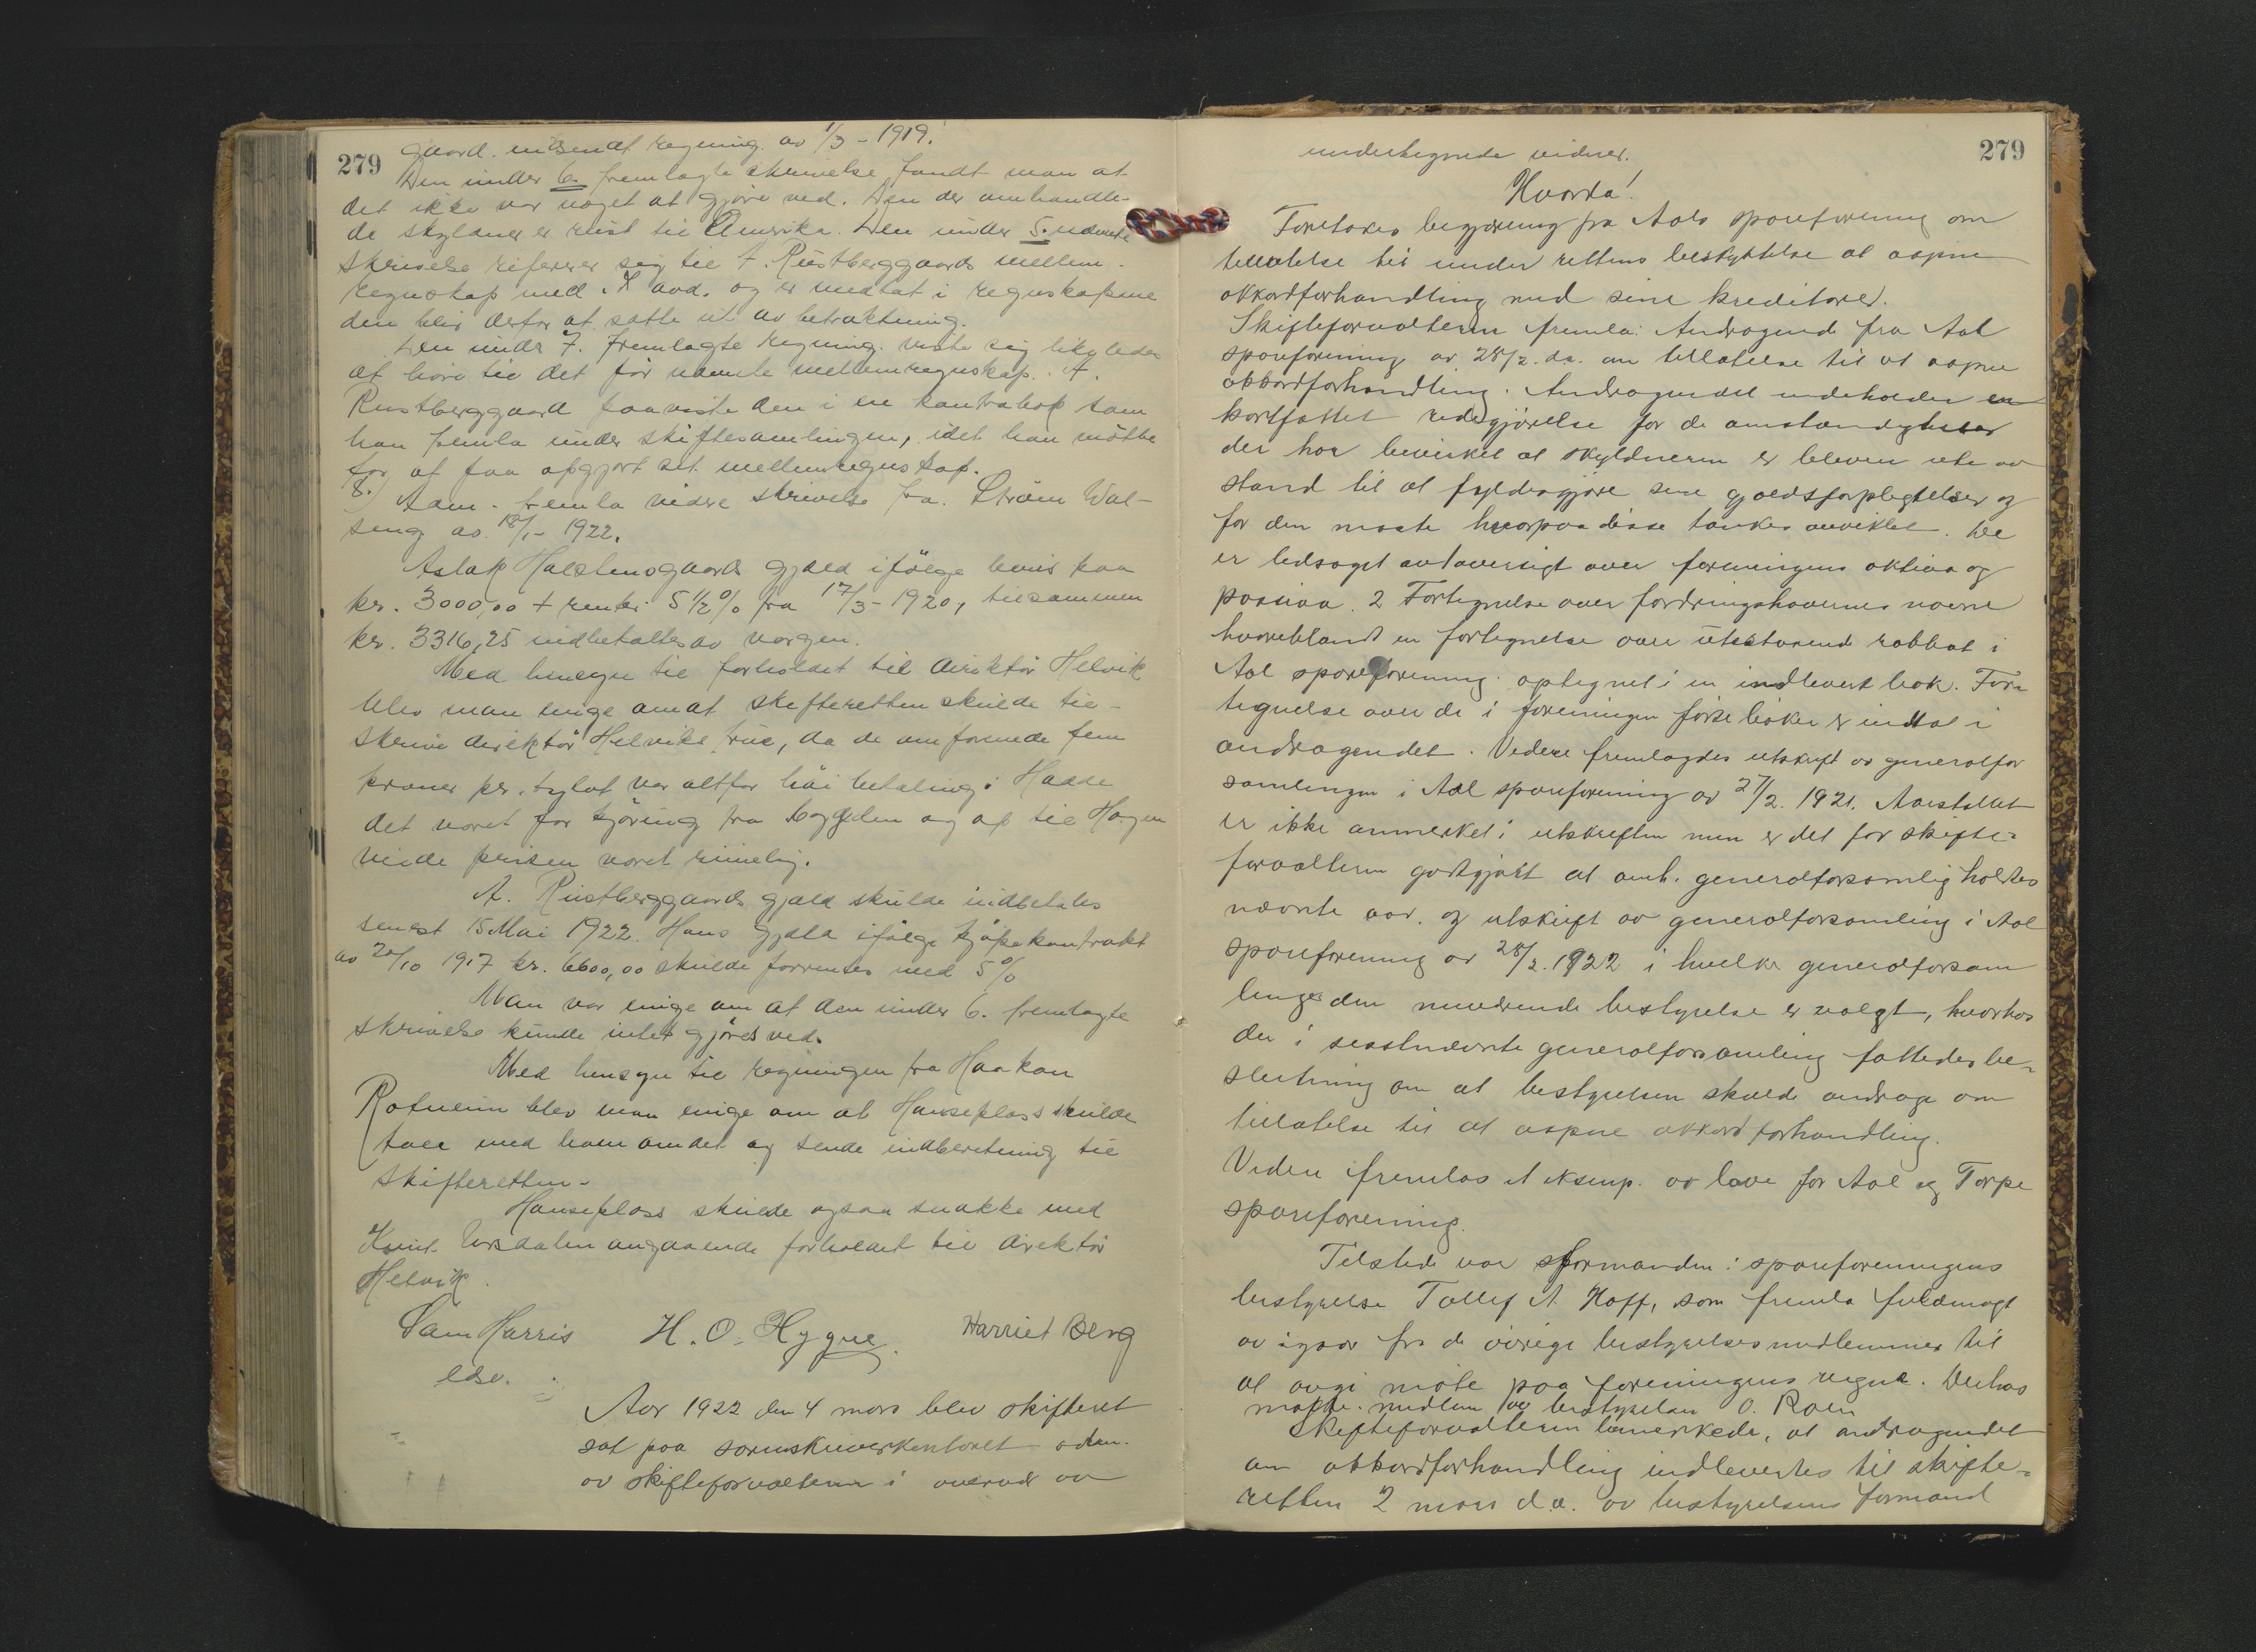 279
gaard. indsendt regning. av 1/3 - 1919.
Den under 6. fremlagte skrivelse fandt man at
det ikke var noget at gjøre ved. Den der omhandle-
de skyldner er reist til Amerika. Den under 5. nævnte
skrivelse referer sig til A. Rustberggaards mellem-
regnskap med avd. og er medtat i regnskapene
den blir derfor at sætte ut av betraktning.
Den under 7. fremlagte regning. viste sig likeledes
at høre til det før nævnte mellemregnskap. A.
Rustberggaard paaviste den i en kontrabok som
han fremla under skiftesamlingen, idet han møtte
for at faa opgjort sit mellemregnskap.
8.) Sam. fremla videre skrivelse fra. Strøm Wal-
seng av 18/1 - 1922.
Aslak Halstensgaards gjæld ifølge bevis paa
kr. 3000,00 + renter 5 1/2 % fra 17/3 - 1920, tilsammen
kr. 3316,25 indbetaltes av vergen.
Med hensyn til forholdet til direktør Helvik
blev man enige om at skifteretten skulde til-
skrive direktør Helviks frue, da de omforenede fem
kroner pr. tylvt var altfor høi betaling. Hadde
det været for kjøring fra bygden og op til Hagen
vilde prisen været rimelig.
A. Rustberggaards gjæld skulde indbetales
senest 15 Mai 1922. Hans gjæld ifølge kjøpekontrakt
av 20/10 1917 kr. 6600,00 skulde forrentes med 5 %
Man var enige om at den under 6. fremlagte
skrivelse kunde intet gjøres ved.
Med hensyn til regningen fra Haakon
Rotneim blev man enige om at Hanseplass skulde
tale med ham om det og sende indberetning til
skifteretten.
Hanseplass skulde ogsaa snakke med
Knut Ursdalen angaaende forholdet til direktør
Helvik.
Sam Harris H. O. Hygne. Harriet Berg
edsv.
Aar 1922 den 4 mars blev skifteret
sat paa sorenskriverkontoret adm.
av skifteforvalteren i overvær av
279
undertegnede vidner.
Hvorda!
Foretokes begjæring fra Aals spareforening om
tillatelse til under rettens beskyttelse at aapne
akkordforhandling med sine kreditorer.
Skifteforvalteren fremla: Andragende fra Aal
spareforening av 28/2. ds. om tillatelse til at aapne
akkordforhandling. Andragendet indeholder en
kortfattet redegjørelse for de omstændigheter
der har bevirket at skyldneren er bleven ute av
stand til at fyldesgjøre sine gjældsforpligtelser og
for den maate hvorpaa disse tænkes avviklet. De
er ledsaget av 1 oversigt over foreningens aktiva og
passiva. 2 Fortegnelse over fordringshavernes navne
hvoriblandt en fortegnelse over utestaaende rabbat i
Aal spareforening optegnet i en indlevert bok. For-
tegnelse over de i foreningen førte bøker er indtat i
andragendet. Videre fremlagdes utskrift av generalfor
samlingen i Aal spareforening av 27/2. 1921. Aarstallet
er ikke anmerket i utskriften men er det for skifte-
forvalteren godtgjørt at omh. generalforsamling holdtes
nævnte aar. og utskrift av generalforsamling i Aal
spareforening av 28/2. 1922 i hvilken generalforsam
linge den nuværende bestyrelse er valgt, hvorhos
der i sisstnævnte generalforsamling fattedes be-
slutning om at bestyrelsen skulde andrage om
tillatelse til at aapne akkordforhandling.
Videre fremlaes et eksemp. av love for Aal og Torpe
spareforening.
Tilstede var formanden i spareforeningens
bestyrelse Tollef A. Hoff, som fremla fuldmagt
av igaar fra de øvrige bestyrelsesmedlemmer til
at avgi møte paa foreningens vegne. Derhos
møtte medlem av bestyrelsen O. Roen
Skifteforvalteren bemerkede, at andragendet
om akkordforhandling indlevertes til skifte-
retten 2 mars d.a. av bestyrelsens formand